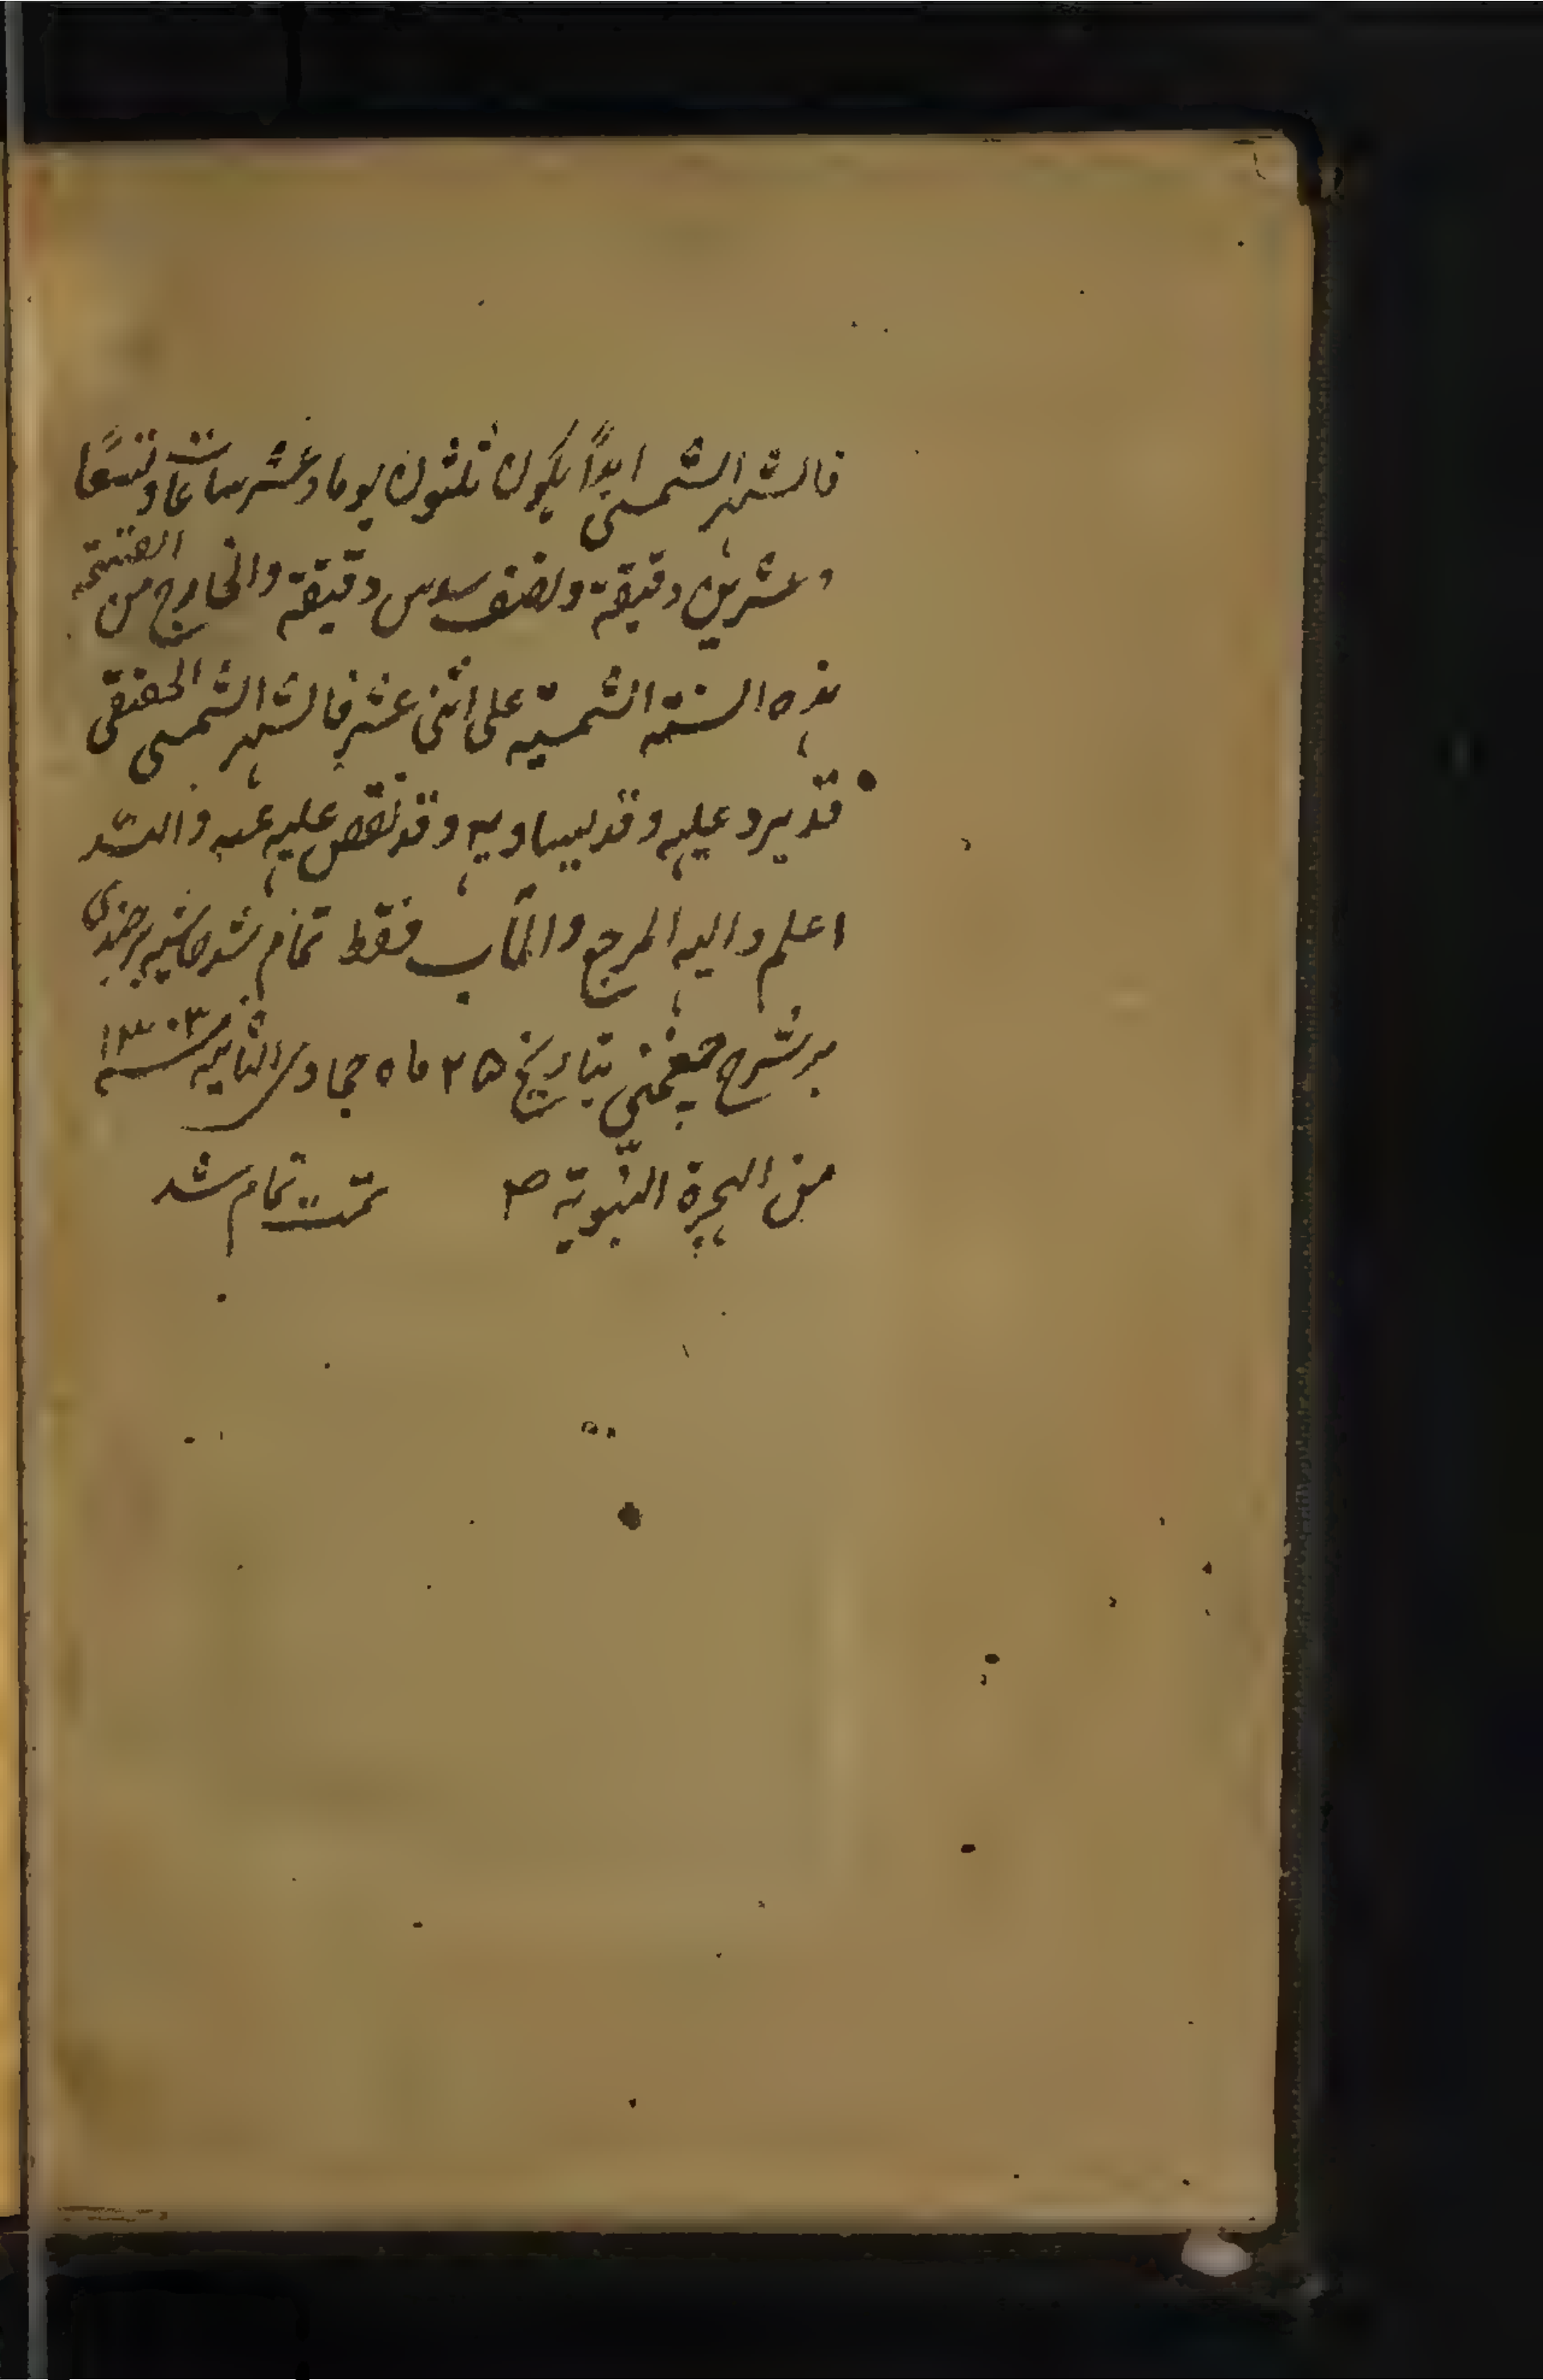 فالشهر الشمسى ابدًا يكون ثلثون يوما وعشر ساعات وتسعًا
وعشرين دقيقة ونصف سدس دقيقة والخارج من القسمة
هذه السنة الشمسية على اثنى عشر فالشهر الشمسى الحقيقى
قد يرد عليه وقد يساويه وقد نقص عليه عنه والله
اعلم واليه المرجع والمآب فقط تمام شد حاشيه برجندى
بر شرح چغمنى بتاريخ ٢٥ ماه جمادى الثانيه سنه ١٣٠٣
من الهجرة النبوية ص تمت تمام شد